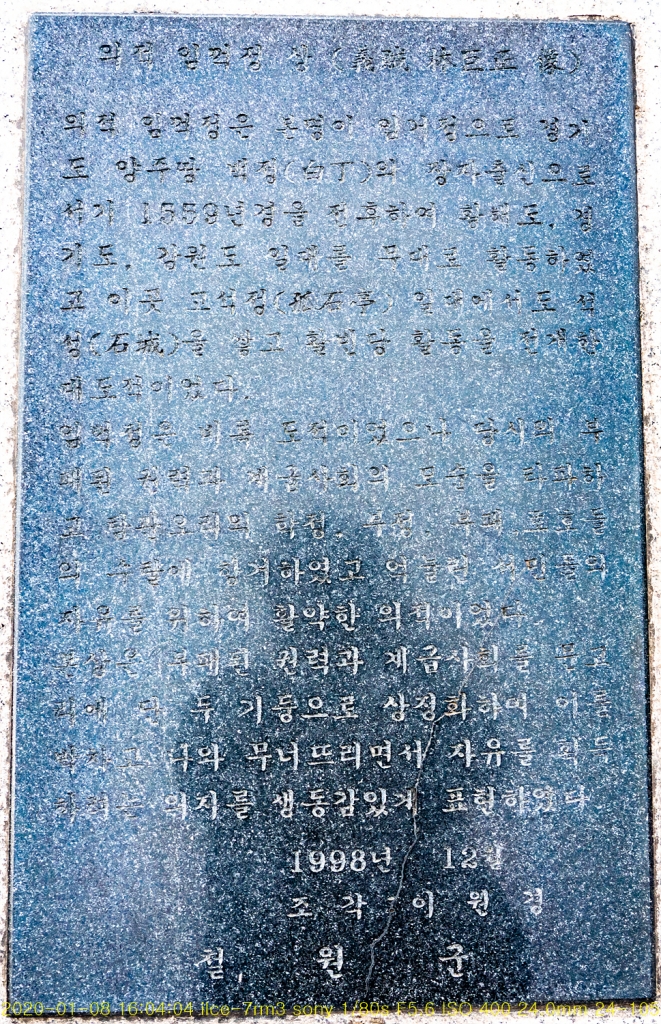 의적 임꺽정 상 (義賊 林巨正 像)
의적 임꺽정은 본명이 임거정으로 경기
도 양주땅 백정(白丁)의 장자출신으로
서기 1559년경을 전후하여 황해도, 경
기도, 강원도 일대를 무대로 활동하였
고 이곳 고석정(孤石亭) 일대에서도 석
성(石城)을 쌓고 활빈당 활동을 전개한
대도적이었다.
임꺽정은 비록 도적이었으나 당시의 부
패된 권력과 계급사회의 모순을 타파하
고 탐관오리의 학정, 부정, 부패 토호들
의 수탈에 항거하였고 억눌린 서민들의
자유를 위하여 활약한 의적이었다.
본상은 부패된 권력과 계급사회를 문고
리에 단 두 기둥으로 상징화하여 이를
박차고 나와 무너뜨리면서 자유를 획득
의지를 생동감있게 표현하였다
1998년 12월
조 각 이 원 경
철 원 군
2020-01-08 16:04:04 ilce-7rm3 sony 1/80s F5.6 ISO 400 24.0mm